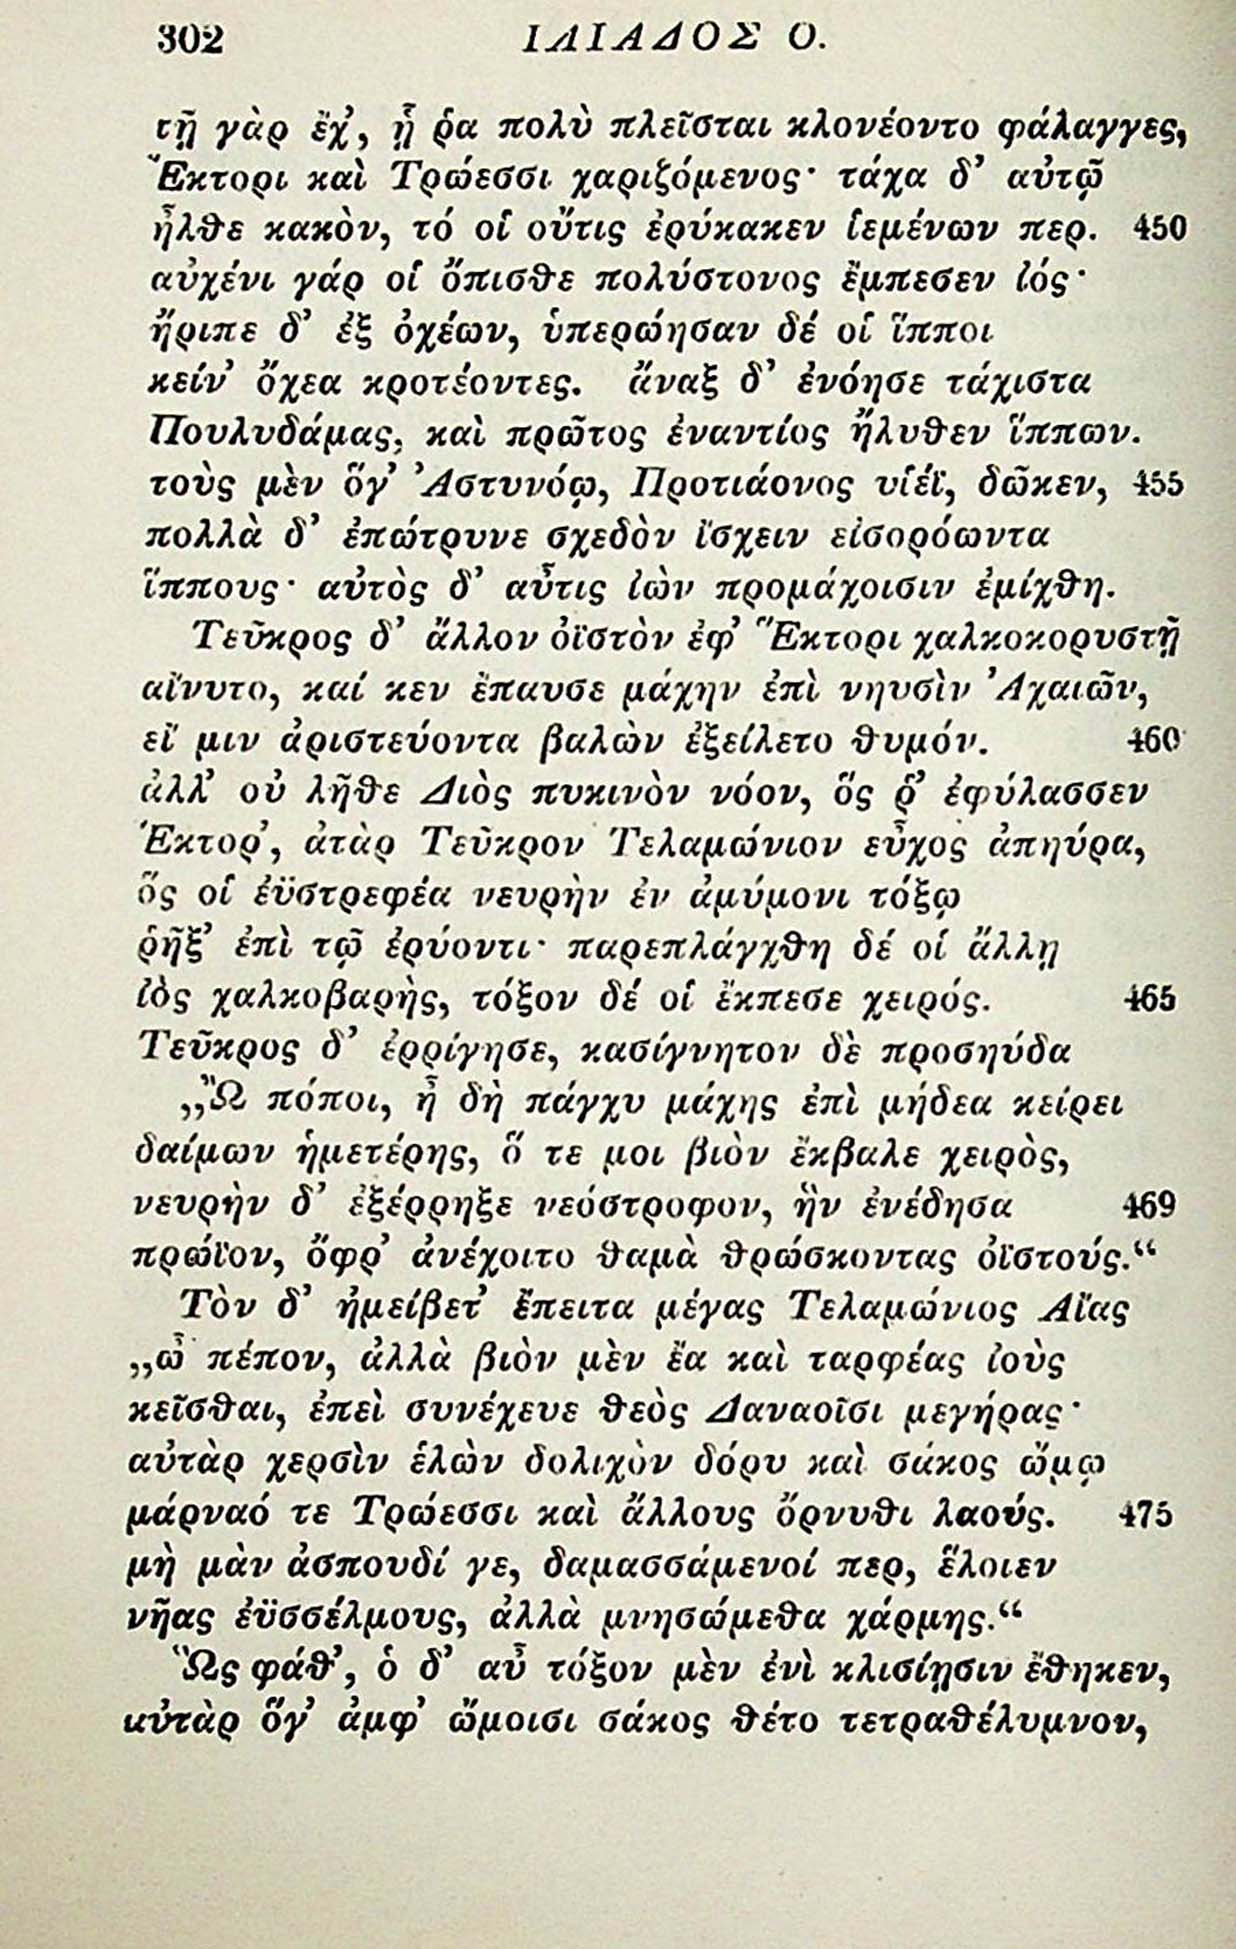 302 ΙΛΙΑΔΟΣ Ο.
τῇ γὰρ ἔχ’, ᾗ ῥα πολὺ πλεῖσται κλονέοντο φάλαγγες,
Ἕκτορι καὶ Τρώεσσι χαριζόμενος· τάχα δ’ αὐτῷ
ἦλθε κακὸν, τό οἱ οὔτις ἐρύκακεν ἱεμένων περ. 450
αὐχένι γάρ οἱ ὄπισθε πολύστονος ἔμπεσεν ἰός·
ἤριπε δ’ ἐξ ὀχέων, ὑπερώησαν δέ οἱ ἵπποι
κείν’ ὄχεα κροτέοντες. ἄναξ δ’ ἐνόησε τάχιστα
Πουλυδάμας, καὶ πρῶτος ἐναντίος ἤλυθεν ἵππων.
τοὺς μὲν ὅγ’ Ἀστυνόῳ, Προτιάονος υἱέϊ, δῶκεν, 455
πολλὰ δ’ ἐπώτρυνε σχεδὸν ἴσχειν εἰσορόωντα
ἵππους· αὐτὸς δ’ αὖτις ἰὼν προμάχοισιν ἐμίχθη.
Τεῦκρος δ’ ἄλλον ὀϊστὸν ἐφ’ Ἕκτορι χαλκοκορυστῇ
αἴνυτο, καί κεν ἔπαυσε μάχην ἐπὶ νηυσὶν Ἀχαιῶν,
εἴ μιν ἀριστεύοντα βαλὼν ἐξείλετο θυμόν. 460
ἀλλ’ οὐ λῆθε Διὸς πυκινὸν νόον, ὅς ῥ’ ἐφύλασσεν
Ἕκτορ’, ἀτὰρ Τεῦκρον Τελαμώνιον εὖχος ἀπηύρα,
ὅς οἱ ἐϋστρεφέα νευρὴν ἐν ἀμύμονι τόξῳ
ῥῆξ’ ἐπὶ τῷ ἐρύοντι· παρεπλάγχθη δέ οἱ ἄλλῃ
ἰὸς χαλκοβαρὴς, τόξον δέ οἱ ἔκπεσε χειρός. 465
Τεῦκρος δ’ ἐρρίγησε, κασίγνητον δὲ προσηύδα
„Ὢ πόποι, ἦ δὴ πάγχυ μάχης ἐπὶ μήδεα κείρει
δαίμων ἡμετέρης, ὅ τε μοι βιὸν ἔκβαλε χειρὸς,
νευρὴν δ’ ἐξέρρηξε νεόστροφον, ἣν ἐνέδησα 469
πρώϊον, ὄφρ’ ἀνέχοιτο θαμὰ θρώσκοντας ὀϊστούς.“
Τὸν δ’ ἠμείβετ’ ἔπειτα μέγας Τελαμώνιος Αἴας
„ὦ πέπον, ἀλλὰ βιὸν μὲν ἔα καὶ ταρφέας ἰοὺς
κεῖσθαι, ἐπεὶ συνέχευε θεὸς Δαναοῖσι μεγήρας·
αὐτὰρ χερσὶν ἑλὼν δολιχὸν δόρυ καὶ σάκος ὤμῳ
μάρναό τε Τρώεσσι καὶ ἄλλους ὄρνυθι λαούς. 475
μὴ μὰν ἀσπουδί γε, δαμασσάμενοί περ, ἕλοιεν
νῆας ἐϋσσέλμους, ἀλλὰ μνησώμεθα χάρμης.“
Ὣς φάθ’, ὁ δ’ αὖ τόξον μὲν ἐνὶ κλισίῃσιν ἔθηκεν,
αὐτὰρ ὅγ’ ἀμφ’ ὤμοισι σάκος θέτο τετραθέλυμνον,